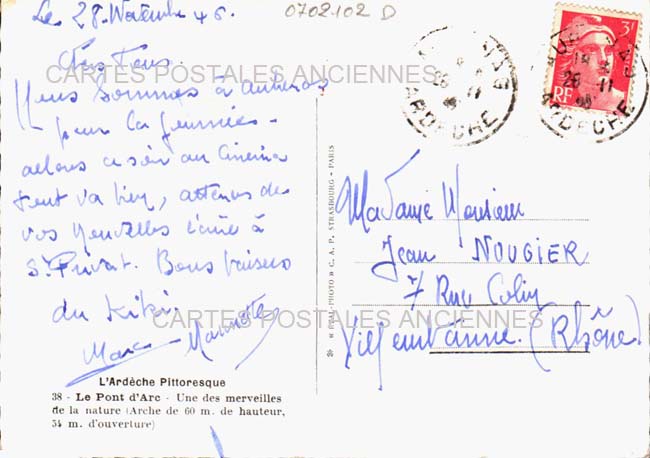 Le 28 Novembre 46.
0702102 D
Chers Tous.
CARTES POSTALES ANCIENNES
Nous sommes à Aubenas
pour la journée.
allons ce soir au Cinema
tout va bien, attenons de
vos Nouvelles écrire à
St Privat. Bons baisers
du Kiki.
Marc Mannette
CARTES POSTALES ANCIENNES
L'Ardèche Pittoresque
38 - Le Pont d'Arc - Une des merveilles
de la nature (Arche de 60 m. de hauteur,
54 m. d'ouverture)
"RÉAL-PHOTO" C. A. P. STRASBOURG - PARIS
3F
RF
28 11
ARDECHE
28 11
ARDECHE
Madame Monsieur
Jean NOUGIER
7 Rue Colin
Villeurbanne. (Rhône)